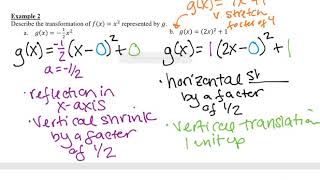 Example 2
Describe the transformation of f(x) = x² represented by g.
a. g(x) = -½x²
g(x)=-½(x-0)²+0
a=-1/2
• reflection in
x-axis
• vertical shrink
by a factor
of 1/2
v. stretch
factor of 4
b. g(x) = (2x)² + 1
g(x)=1(2x-0)²+1
• horizontal
by a factor
of 1/2
• vertical translation
1 unit up